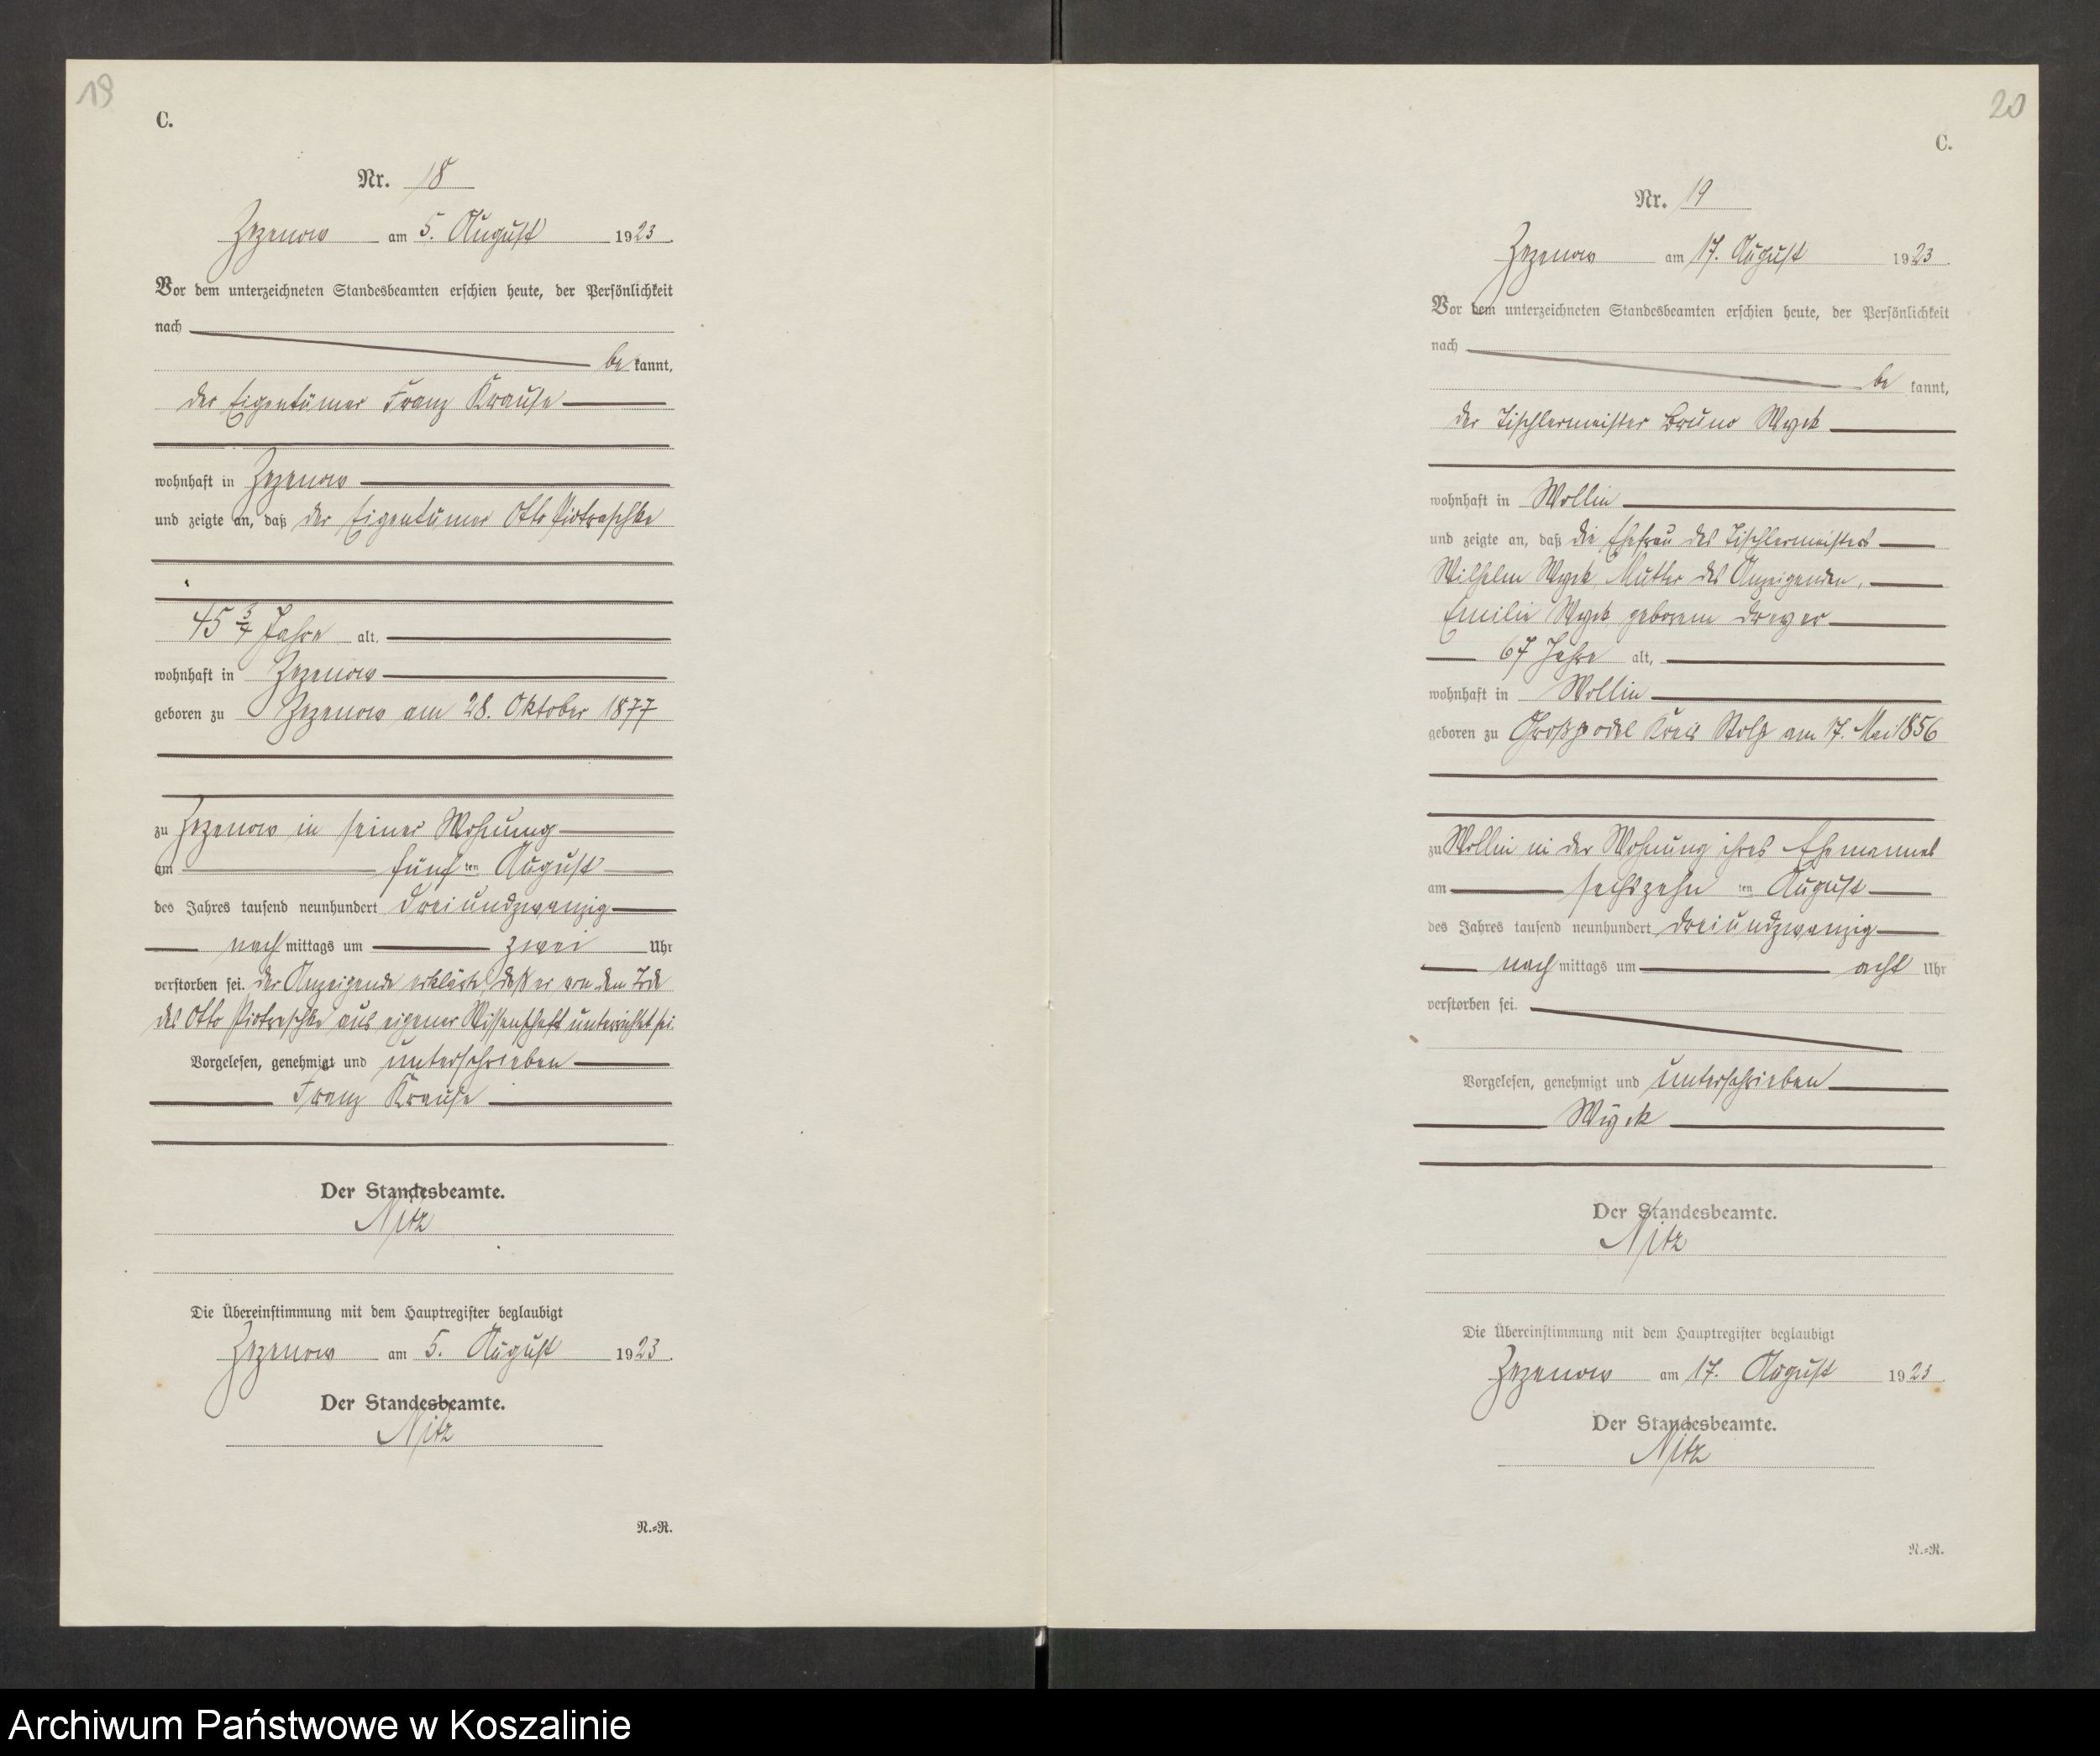 19
C.
Nr. 18
Zezenow am 5. August 1923.
Vor dem unterzeichneten Standesbeamten erschien heute, der Persönlichkeit
nach
be kannt,
der Eigentümer Franz Krause
wohnhaft in Zezenow
und zeigte an, daß der Eigentümer Otto Piotraschke
45 3/4 Jahre alt,
wohnhaft in Zezenow
geboren zu Zezenow am 28. Oktober 1877
zu Zezenow in seiner Wohnung
am fünf ten August
des Jahres tausend neunhundert dreiundzwanzig
nach mittags um zwei Uhr
verstorben sei. Der Anzeigende erklärte, daß er von dem Tode
des Otto Piotraschke aus eigener Wissenschaft unterrichtet sei.
Vorgelesen, genehmigt und unterschrieben
Franz Krause
Der Standesbeamte.
Nitz
Die Übereinstimmung mit dem Hauptregister beglaubigt
Zezenow am 5. August 1923.
Der Standesbeamte.
Nitz
N.=R.
20
C.
Nr. 19
Zezenow am 17. August 1923.
Vor dem unterzeichneten Standesbeamten erschien heute, der Persönlichkeit
nach
be kannt,
der Tischlermeister Bruno Wyck
wohnhaft in Wollin
und zeigte an, daß die Ehefrau des Tischlermeisters
Wilhelm Wyck, Mutter des Anzeigenden,
Emilie Wyck geborene Dreyer
67 Jahre alt,
wohnhaft in Wollin
geboren zu Großpodel Kreis Stolp am 17. Mai 1856
zu Wollin in der Wohnung ihres Ehemannes
am sechszehn ten August
des Jahres tausend neunhundert dreiundzwanzig
nach mittags um acht Uhr
verstorben sei.
Vorgelesen, genehmigt und unterschrieben
Wyck
Der Standesbeamte.
Nitz
Die Übereinstimmung mit dem Hauptregister beglaubigt
Zezenow am 17. August 1923.
Der Standesbeamte.
Nitz
N.=R.
Archiwum Państwowe w Koszalinie